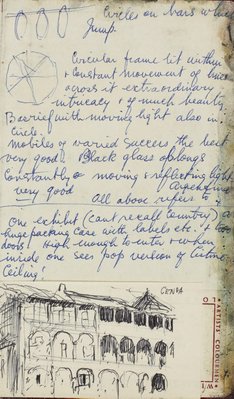 Circles on bars which
jump.
Circular frame lit within
+ constant movement of lines
across it extraordinary
intricacy + of much beauty.
Basrelief with moving light also in
Circle.
Mobiles of varied success the best
very good. Black glass oblongs
Constantly moving + reflecting light
very good Argentine
All above refers to
One exhibit (cant recall country) a
huge packing case with labels etc. +
doors. High enough to enter + when
inside one sees pop version of Cistine
Ceiling!
CENDA
ARTISTS COLOURMEN